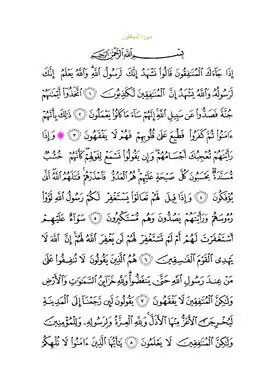 سورة المنافقون
بِسْمِ اللَّهِ الرَّحْمَٰنِ الرَّحِيمِ
إِذَا جَاءَكَ الْمُنَافِقُونَ قَالُوا نَشْهَدُ إِنَّكَ لَرَسُولُ اللَّهِ وَاللَّهُ يَعْلَمُ إِنَّكَ
لَرَسُولُهُ وَاللَّهُ يَشْهَدُ إِنَّ الْمُنَافِقِينَ لَكَاذِبُونَ ١ اتَّخَذُوا أَيْمَانَهُمْ
جُنَّةً فَصَدُّوا عَن سَبِيلِ اللَّهِ إِنَّهُمْ سَاءَ مَا كَانُوا يَعْمَلُونَ ٢ ذَٰلِكَ بِأَنَّهُمْ
ءَامَنُوا ثُمَّ كَفَرُوا فَطُبِعَ عَلَىٰ قُلُوبِهِمْ فَهُمْ لَا يَفْقَهُونَ ٣ وَإِذَا
رَأَيْتَهُمْ تُعْجِبُكَ أَجْسَامُهُمْ وَإِن يَقُولُوا تَسْمَعْ لِقَوْلِهِمْ كَأَنَّهُمْ خُشُبٌ
مُّسَنَّدَةٌ يَحْسَبُونَ كُلَّ صَيْحَةٍ عَلَيْهِمْ هُمُ الْعَدُوُّ فَاحْذَرْهُمْ قَاتَلَهُمُ اللَّهُ أَنَّىٰ
يُؤْفَكُونَ ٤ وَإِذَا قِيلَ لَهُمْ تَعَالَوْا يَسْتَغْفِرْ لَكُمْ رَسُولُ اللَّهِ لَوَّوْا
رُءُوسَهُمْ وَرَأَيْتَهُمْ يَصُدُّونَ وَهُم مُّسْتَكْبِرُونَ ٥ سَوَاءٌ عَلَيْهِمْ
أَسْتَغْفَرْتَ لَهُمْ أَمْ لَمْ تَسْتَغْفِرْ لَهُمْ لَن يَغْفِرَ اللَّهُ لَهُمْ إِنَّ اللَّهَ لَا
يَهْدِي الْقَوْمَ الْفَاسِقِينَ ٦ هُمُ الَّذِينَ يَقُولُونَ لَا تُنفِقُوا عَلَىٰ
مَنْ عِندَ رَسُولِ اللَّهِ حَتَّىٰ يَنفَضُّوا وَلِلَّهِ خَزَائِنُ السَّمَاوَاتِ وَالْأَرْضِ
وَلَٰكِنَّ الْمُنَافِقِينَ لَا يَفْقَهُونَ ٧ يَقُولُونَ لَئِن رَّجَعْنَا إِلَى الْمَدِينَةِ
لَيُخْرِجَنَّ الْأَعَزُّ مِنْهَا الْأَذَلَّ وَلِلَّهِ الْعِزَّةُ وَلِرَسُولِهِ وَلِلْمُؤْمِنِينَ
وَلَٰكِنَّ الْمُنَافِقِينَ لَا يَعْلَمُونَ ٨ يَا أَيُّهَا الَّذِينَ ءَامَنُوا لَا تُلْهِكُمْ